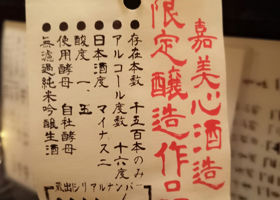 嘉美心酒造
限定醸造作品
存在本数 千五百本のみ
アルコール度数 十六度
日本酒度 マイナス二
酸度 一、五
使用酵母 自社酵母
無濾過純米吟醸生酒
蔵出シリアルナンバー